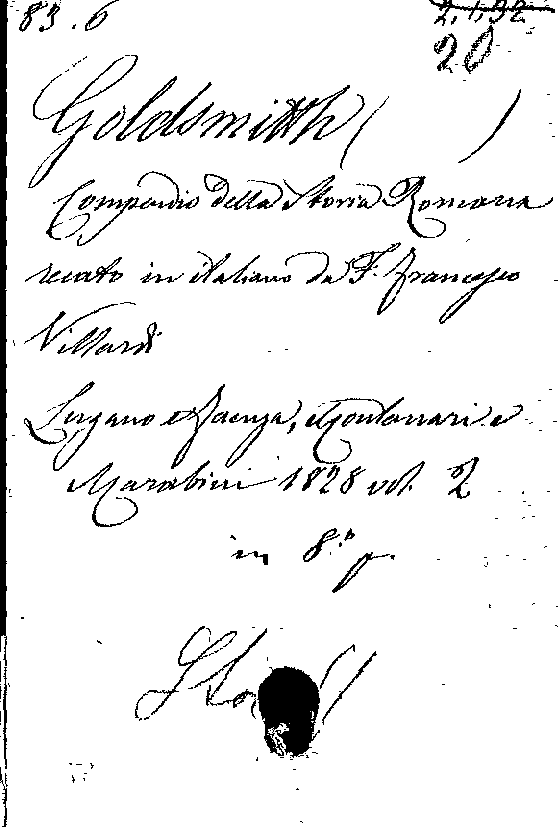 83.6
2.1.32
20
Goldsmith ( )
Compendio della Storia Romana
recato in italiano da F. Francesco
Villardi
Lugano e Faenza, Montanari e
Marabini 1828 vol. 2
in 8.° p.